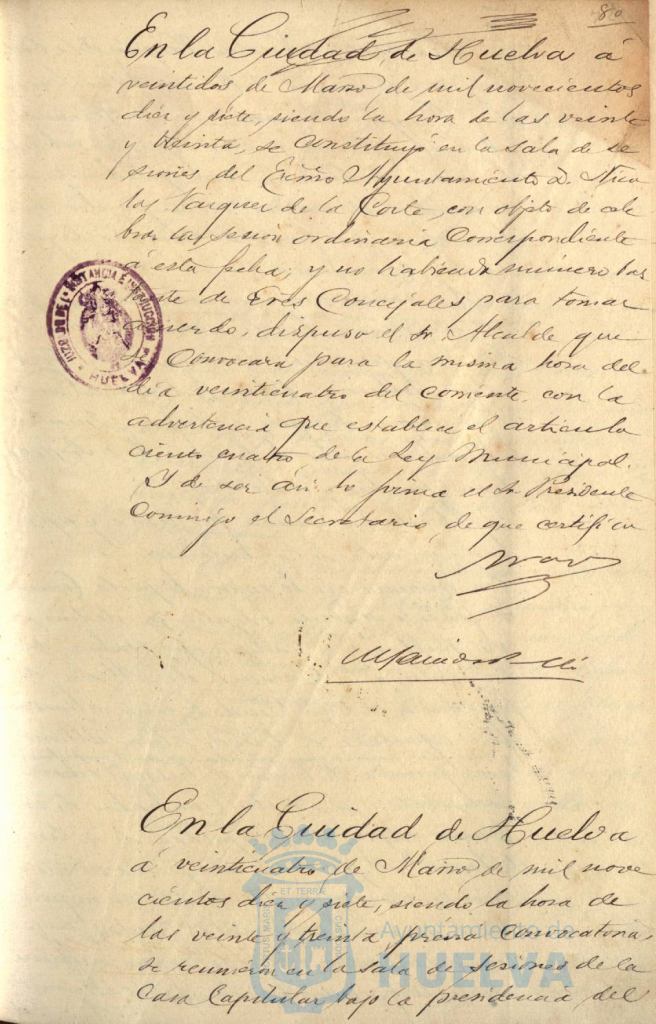 80
En la Ciudad de Huelva á
veintidos de Marzo de mil novecientos
diez y siete, siendo la hora de las veinte
y treinta, se constituyó en la sala de se
siones del Excmo Ayuntamiento D. Nico
las Vazquez de la Corte, con objeto de cele
brar la sesion ordinaria correspondiente
á esta fecha; y no habiendo número bas
te de tres Concejales para tomar
uerdo, dispuso el Sr. Alcalde que
se convocara para la misma hora del
dia veinticuatro del corriente, con la
advertencia que establece el articulo
ciento cuatro de la Ley Municipal.
Y de ser asi lo firma el Sr Presidente
conmigo el Secretario, de que certifico
JUZGADO DE 1ª INSTANCIA É INSTRUCCION
HUELVA
En la Ciudad de Huelva
á veinticuatro de Marzo de mil nove
cientos diez y siete, siendo la hora de
las veinte y treinta, prévia convocatoria,
se reunieron en la sala de sesiones de la
Casa Capitular bajo la presidencia del
ET TERRE
Ayuntamiento de
HUELVA